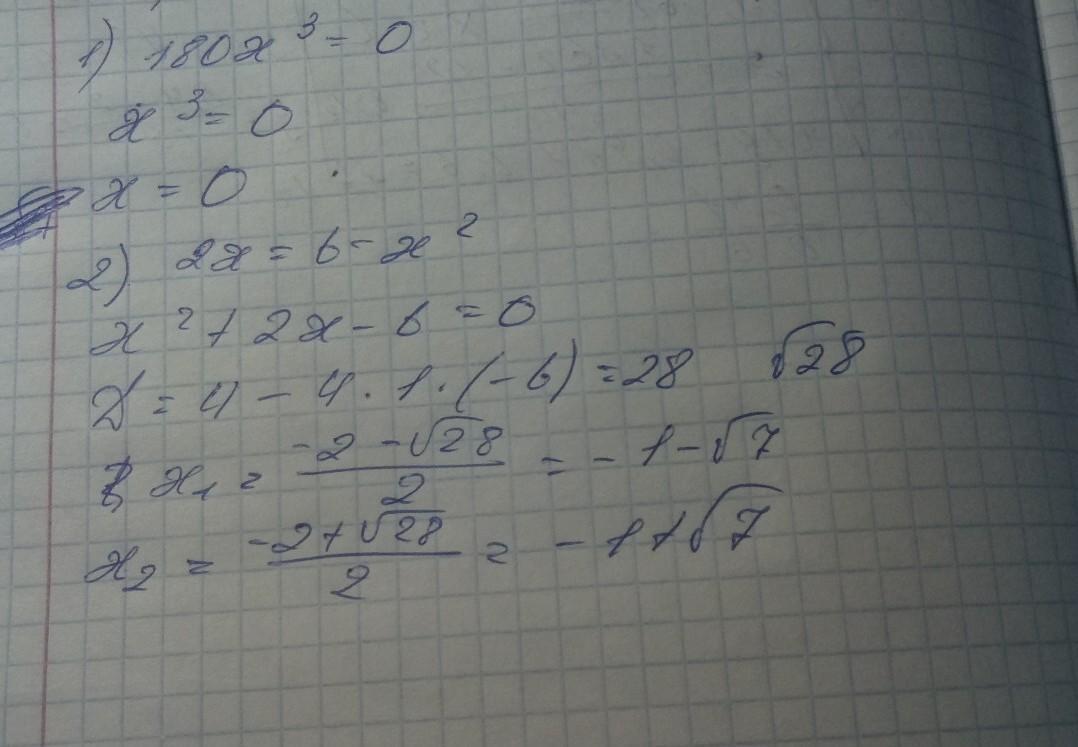 1) 180x³ = 0
x³ = 0
x = 0
2) 2x = 6 - x²
x² + 2x - 6 = 0
D = 4 - 4 · 1 · (-6) = 28 √28
x₁ = (-2 - √28)/2 = -1 - √7
x₂ = (-2 + √28)/2 = -1 + √7